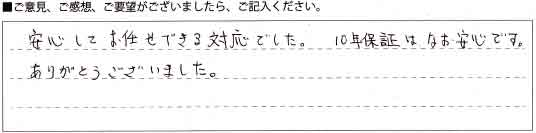 ■ご意見、ご感想、ご要望がございましたら、ご記入ください。
安心してお任せできる対応でした。 10年保証はなお安心です。
ありがとうございました。